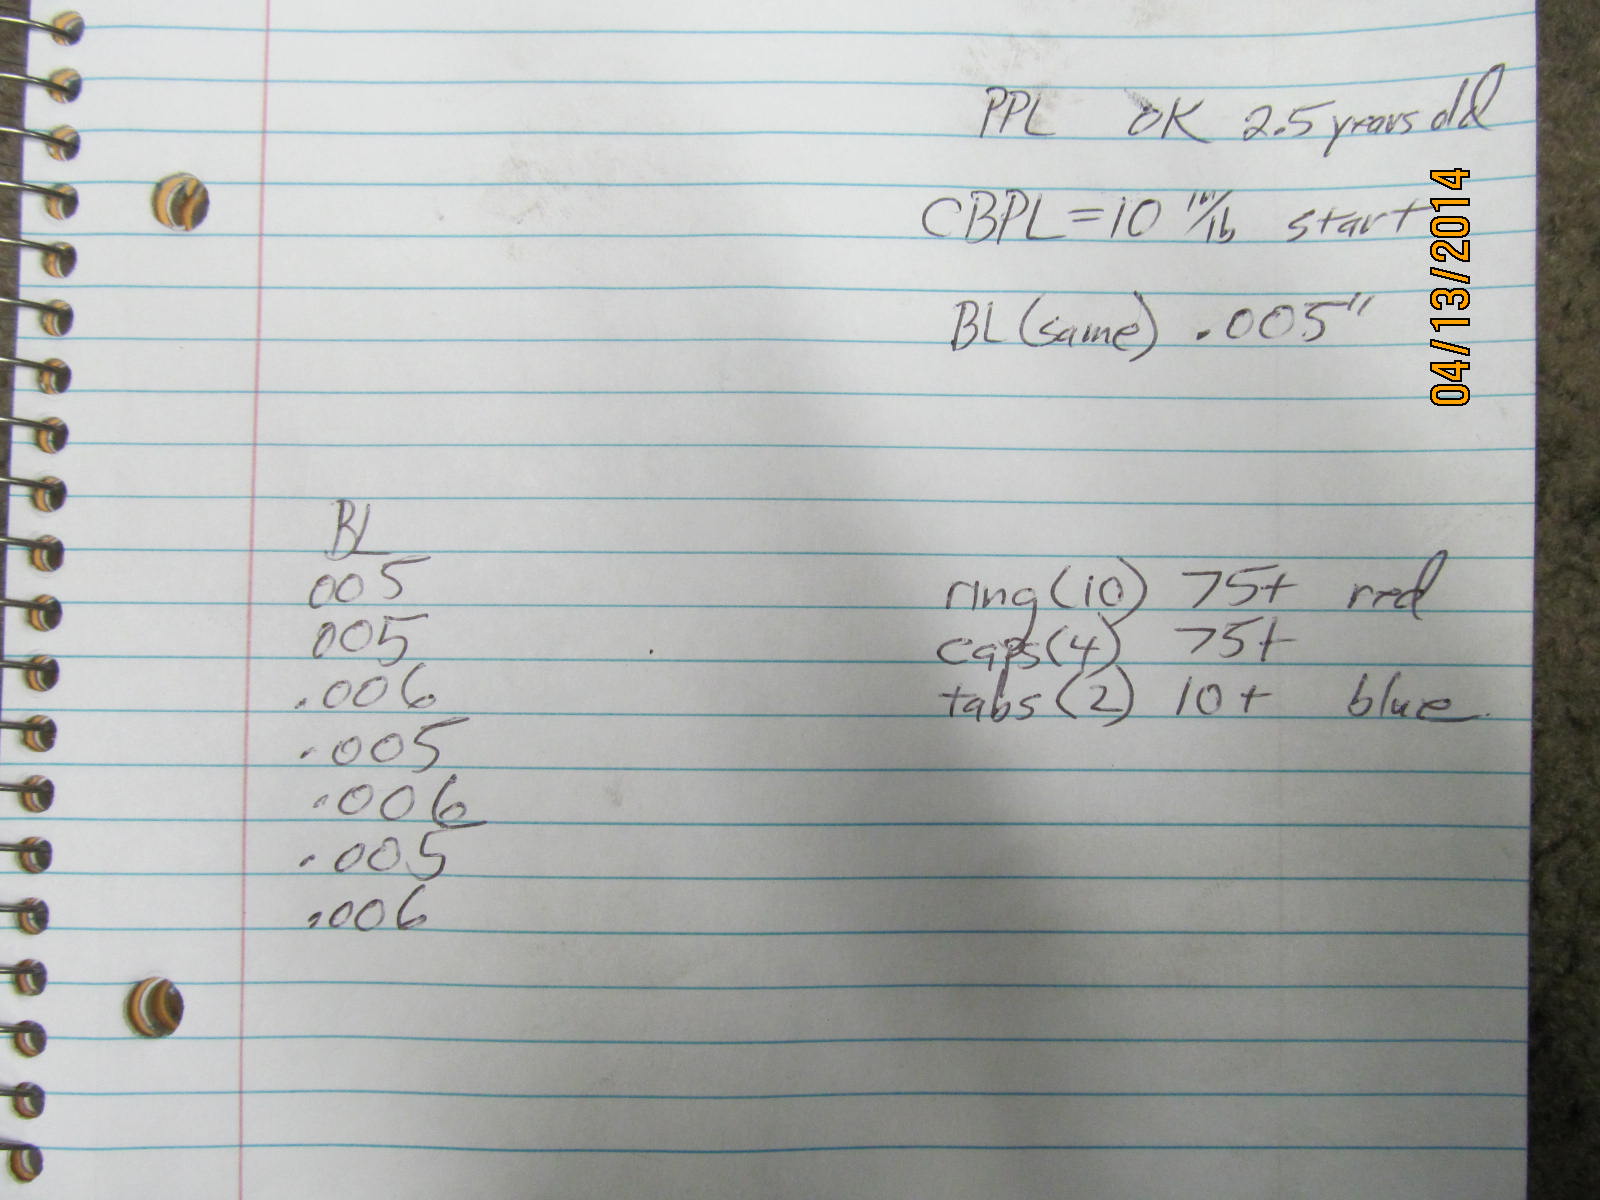 PPL OK 2.5 years old
CBPL = 10 in/lb start
BL (same) .005"
04/13/2014
BL
005
005
.006
.005
.006
.005
.006
ring (10) 75+ red
caps (4) 75+
tabs (2) 10+ blue